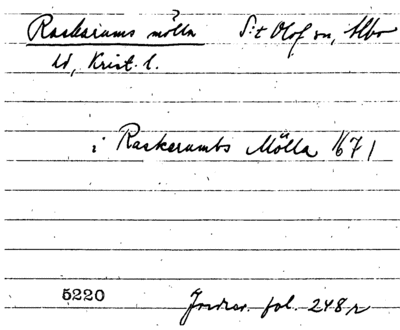 Raskarums mölla S:t Olof sn, Albo
hd, Krist. l.
i Raskerumbs Mölla 1671
5220 Jordrev. fol. 248 r